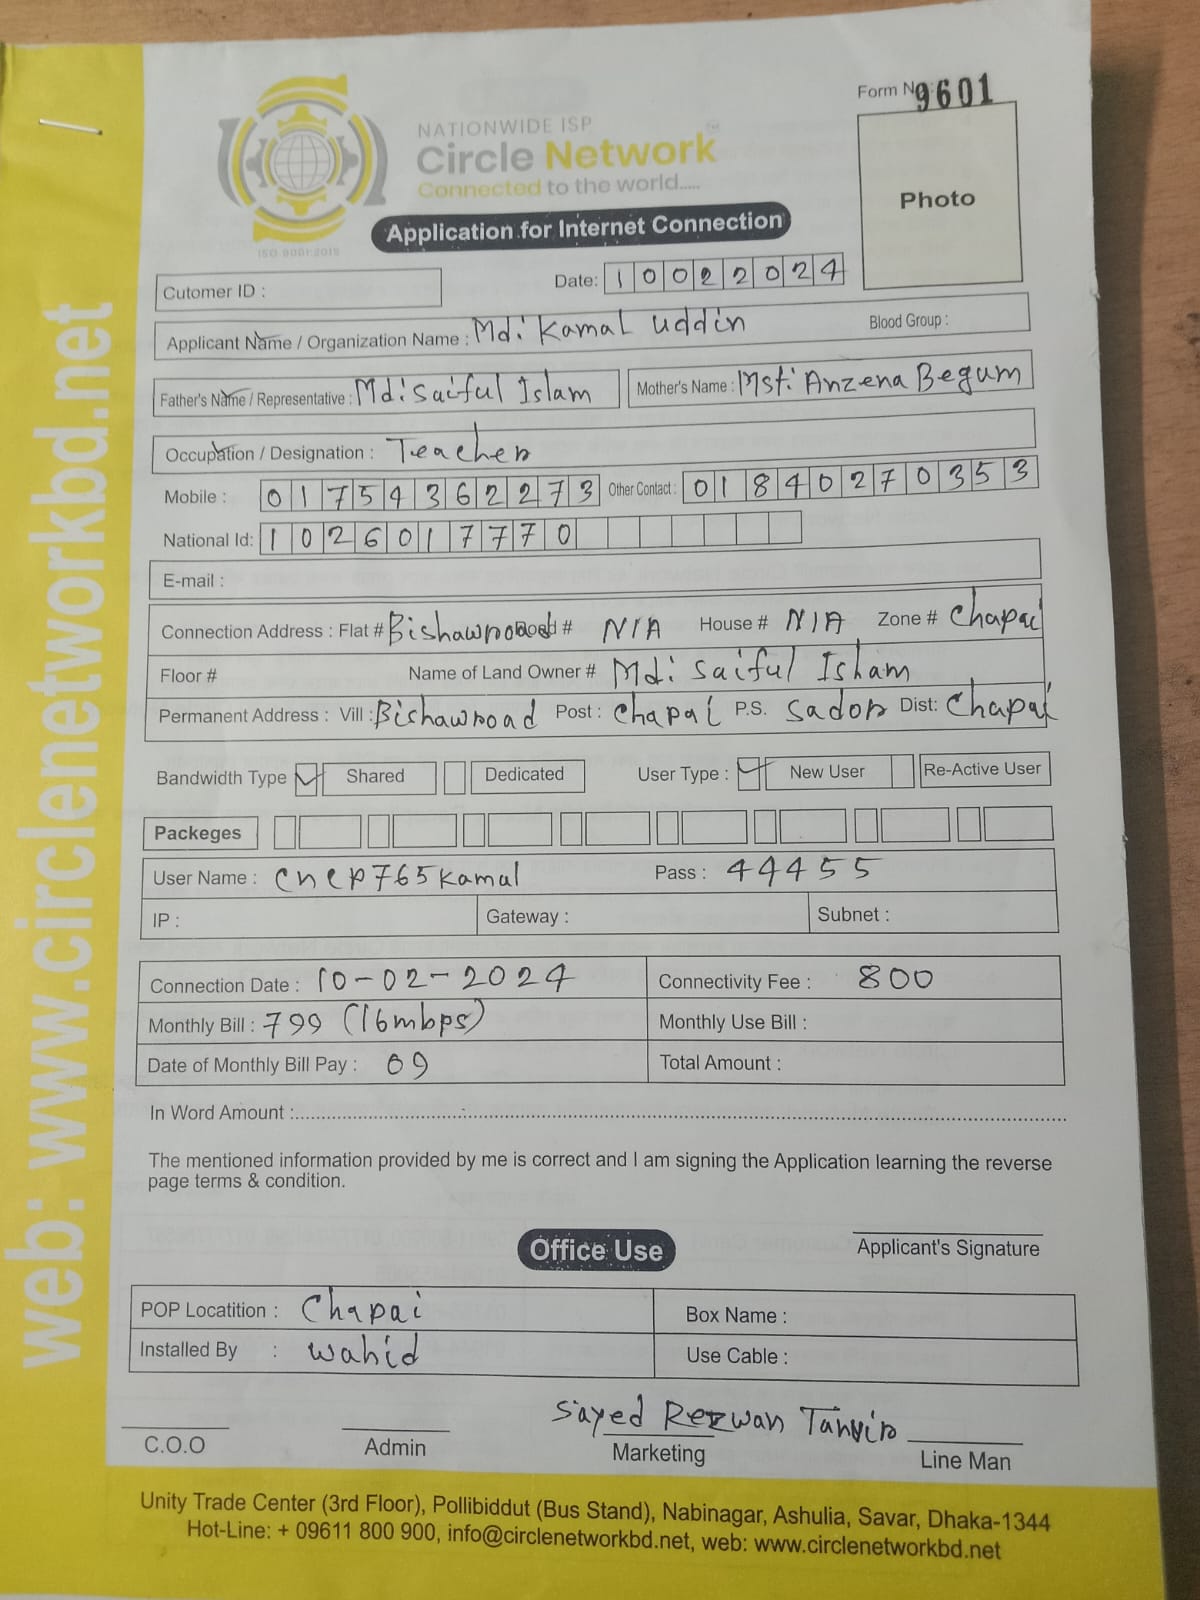 Form No 9601
NATIONWIDE ISP
Circle Network
Connected to the world.....
ISO 9001:2015
Photo
Application for Internet Connection
Cutomer ID : Date: 10022024
Applicant Name / Organization Name : Md: Kamal uddin Blood Group :
Father's Name / Representative : Md: Saiful Islam Mother's Name : Mst: Anzena Begum
Occupation / Designation : Teacher
Mobile : 01754362273 Other Contact : 01840270353
National Id: 1026017770
E-mail :
Connection Address : Flat # Bishawroad Road # N/A House # N/A Zone # Chapai
Floor # Name of Land Owner # Md: Saiful Islam
Permanent Address : Vill : Bishawroad Post : Chapai P.S. Sador Dist: Chapai
Bandwidth Type Shared Dedicated User Type : New User Re-Active User
Packeges
User Name : cncp765kamal Pass : 44455
IP : Gateway : Subnet :
Connection Date : 10-02-2024 Connectivity Fee : 800
Monthly Bill : 799 (16mbps) Monthly Use Bill :
Date of Monthly Bill Pay : 09 Total Amount :
In Word Amount :
The mentioned information provided by me is correct and I am signing the Application learning the reverse
page terms & condition.
Applicant's Signature
Office Use
POP Locatition : Chapai Box Name :
Installed By : Wahid Use Cable :
Sayed Rezwan Tanvir
C.O.O Admin Marketing Line Man
Unity Trade Center (3rd Floor), Pollibiddut (Bus Stand), Nabinagar, Ashulia, Savar, Dhaka-1344
Hot-Line: + 09611 800 900, info@circlenetworkbd.net, web: www.circlenetworkbd.net
web: www.circlenetworkbd.net